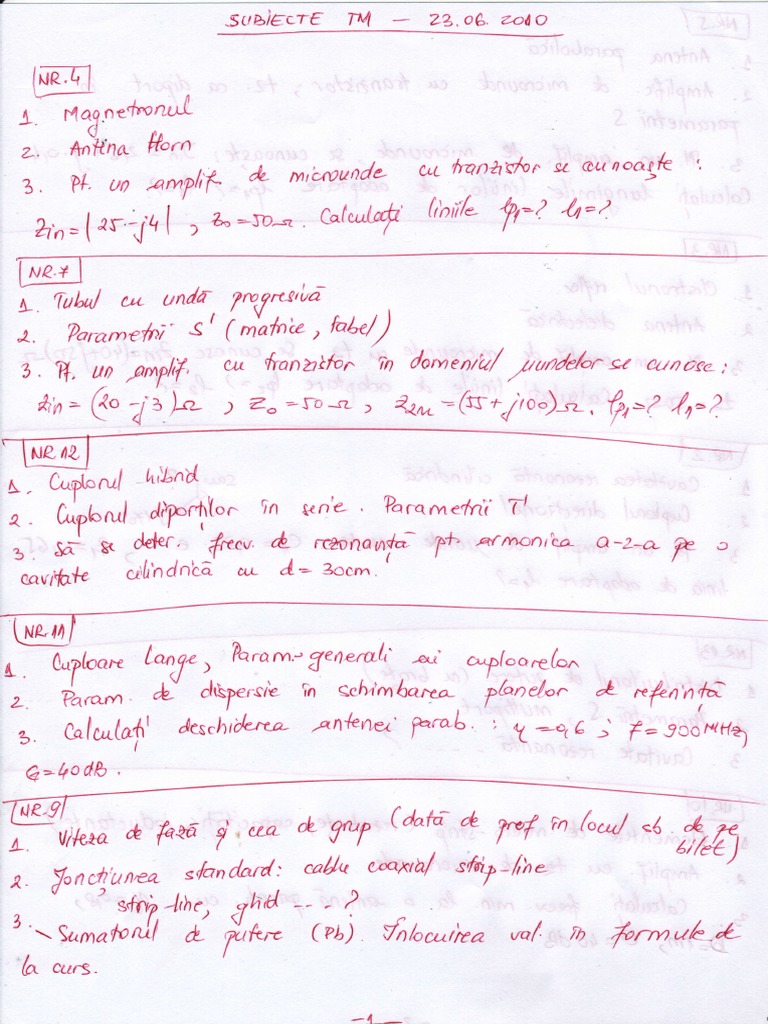 SUBIECTE TM — 23.06.2010
NR.4
1. Magnetronul
2. Antina Horn
3. Pt. un amplif. de microunde cu tranzistor se cunoaște :
Zin = |25 - j4| , Z0 = 50Ω. Calculați liniile lp1 = ? l1 = ?
NR.7
1. Tubul cu undă progresivă
2. Parametrii S (matrice, tabel)
3. Pt. un amplif. cu tranzistor în domeniul μundelor se cunosc :
Zin = (20 - j3)Ω , Z0 = 50Ω , Z2m = (55 + j100)Ω. lp1 = ? l1 = ?
NR 12
1. Cuplorul hibrid
2. Cuplorul diporților în serie. Parametrii T
3. Să se deter. frecv. de rezonanță pt. armonica a-2-a pe o
cavitate cilindrică cu d = 30cm.
NR.11
1. Cuploare Lange, Param. generali ai cuploarelor
2. Param. de dispersie în schimbarea planelor de referință
3. Calculați deschiderea antenei parab. : η = 0,6 ; f = 900MHz,
G = 40 dB.
NR.9
1. Viteza de fază și cea de grup (dată de prof în locul sb. de pe
bilet)
2. Joncțiunea standard: cablu coaxial strip-line
strip-line, ghid - - - ?
3. Sumatorul de putere (Pb). Înlocuirea val. în formule de
la curs.
-1-